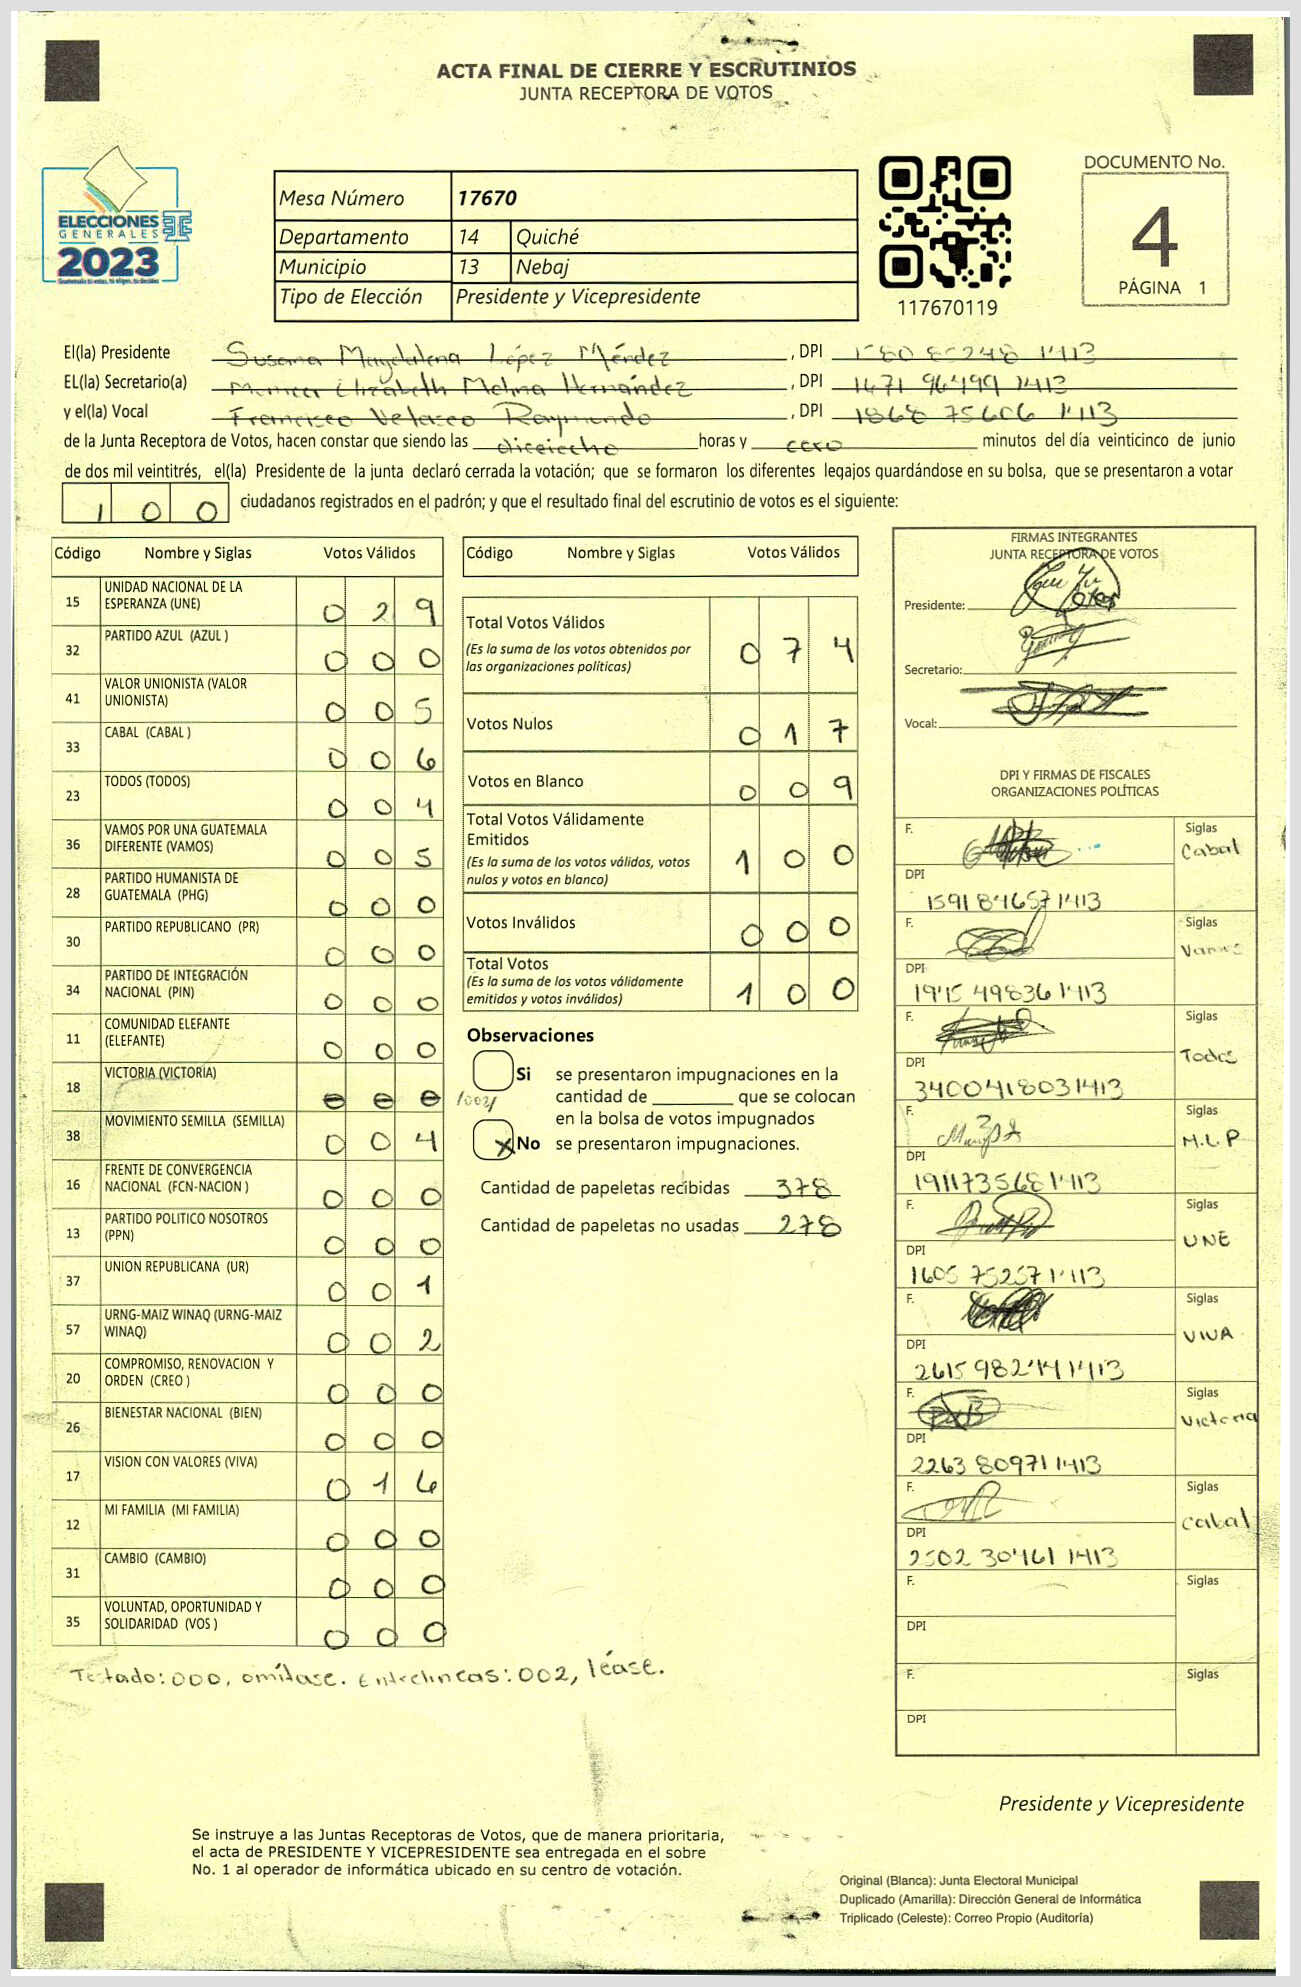 ACTA FINAL DE CIERRE Y ESCRUTINIOS
JUNTA RECEPTORA DE VOTOS
ELECCIONES
GENERALES
2023
Mesa Número 17670
Departamento 14 Quiché
Municipio 13 Nebaj
Tipo de Elección Presidente y Vicepresidente
117670119
DOCUMENTO No.
4
PÁGINA 1
El(la) Presidente Susana Magdalena López Méndez, DPI 1580 85248 1413
EL(la) Secretario(a) Elizabeth Molina Hernández, DPI 1471 96499 1413
y el(la) Vocal Francisco Velasco Raymundo, DPI 1868 75606 1413
de la Junta Receptora de Votos, hacen constar que siendo las dieciocho horas y cero minutos del día veinticinco de junio
de dos mil veintitrés, el(la) Presidente de la junta declaró cerrada la votación; que se formaron los diferentes legajos guardándose en su bolsa, que se presentaron a votar
1 0 0 ciudadanos registrados en el padrón; y que el resultado final del escrutinio de votos es el siguiente:
Código Nombre y Siglas Votos Válidos
15 UNIDAD NACIONAL DE LA ESPERANZA (UNE) 0 2 9
32 PARTIDO AZUL (AZUL ) 0 0 0
41 VALOR UNIONISTA (VALOR UNIONISTA) 0 0 5
33 CABAL (CABAL ) 0 0 6
23 TODOS (TODOS) 0 0 4
36 VAMOS POR UNA GUATEMALA DIFERENTE (VAMOS) 0 0 5
28 PARTIDO HUMANISTA DE GUATEMALA (PHG) 0 0 0
30 PARTIDO REPUBLICANO (PR) 0 0 0
34 PARTIDO DE INTEGRACIÓN NACIONAL (PIN) 0 0 0
11 COMUNIDAD ELEFANTE (ELEFANTE) 0 0 0
18 VICTORIA (VICTORIA) 0 0 0 /002/
38 MOVIMIENTO SEMILLA (SEMILLA) 0 0 4
16 FRENTE DE CONVERGENCIA NACIONAL (FCN-NACION ) 0 0 0
13 PARTIDO POLITICO NOSOTROS (PPN) 0 0 0
37 UNION REPUBLICANA (UR) 0 0 1
57 URNG-MAIZ WINAQ (URNG-MAIZ WINAQ) 0 0 2
20 COMPROMISO, RENOVACION Y ORDEN (CREO ) 0 0 0
26 BIENESTAR NACIONAL (BIEN) 0 0 0
17 VISION CON VALORES (VIVA) 0 1 6
12 MI FAMILIA (MI FAMILIA) 0 0 0
31 CAMBIO (CAMBIO) 0 0 0
35 VOLUNTAD, OPORTUNIDAD Y SOLIDARIDAD (VOS ) 0 0 0
Testado: 000, omítase. Entrelineas: 002, léase.
Código Nombre y Siglas Votos Válidos
Total Votos Válidos 0 7 4
(Es la suma de los votos obtenidos por
las organizaciones políticas)
Votos Nulos 0 1 7
Votos en Blanco 0 0 9
Total Votos Válidamente
Emitidos 1 0 0
(Es la suma de los votos válidos, votos
nulos y votos en blanco)
Votos Inválidos 0 0 0
Total Votos 1 0 0
(Es la suma de los votos válidamente
emitidos y votos inválidos)
Observaciones
Si se presentaron impugnaciones en la
cantidad de ________ que se colocan
en la bolsa de votos impugnados
X No se presentaron impugnaciones.
Cantidad de papeletas recibidas 378
Cantidad de papeletas no usadas 278
FIRMAS INTEGRANTES
JUNTA RECEPTORA DE VOTOS
Presidente:
Secretario:
Vocal:
DPI Y FIRMAS DE FISCALES
ORGANIZACIONES POLÍTICAS
F. Siglas Cabal
DPI 1591 84657 1413
F. Siglas Vamos
DPI 1945 49836 1413
F. Siglas Todos
DPI 3400418031413
F. Siglas M.L.P
DPI 1911735681413
F. Siglas UNE
DPI 1605 75257 1413
F. Siglas VIVA
DPI 2615 98244 1413
F. Siglas Victoria
DPI 2263 80971 1413
F. Siglas Cabal
DPI 2502 30461 1413
F. Siglas
DPI
F. Siglas
DPI
Presidente y Vicepresidente
Se instruye a las Juntas Receptoras de Votos, que de manera prioritaria,
el acta de PRESIDENTE Y VICEPRESIDENTE sea entregada en el sobre
No. 1 al operador de informática ubicado en su centro de votación.
Original (Blanca): Junta Electoral Municipal
Duplicado (Amarilla): Dirección General de Informática
Triplicado (Celeste): Correo Propio (Auditoría)